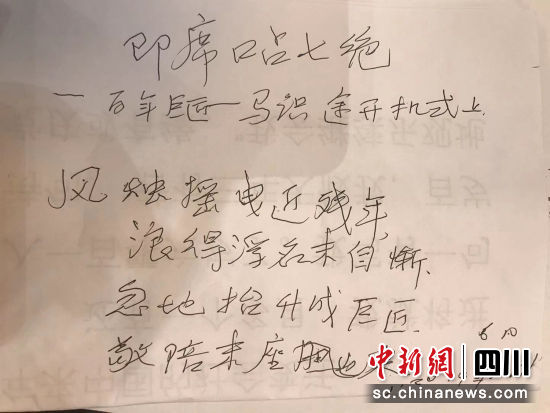 即席口占七绝
一百年巨匠—马识途开机式上.
风烛摇曳近残年,
浪得浮名未自惭.
忽地抬升成巨匠.
敬陪末座
中新網 四川
sc.chinanews.com.cn